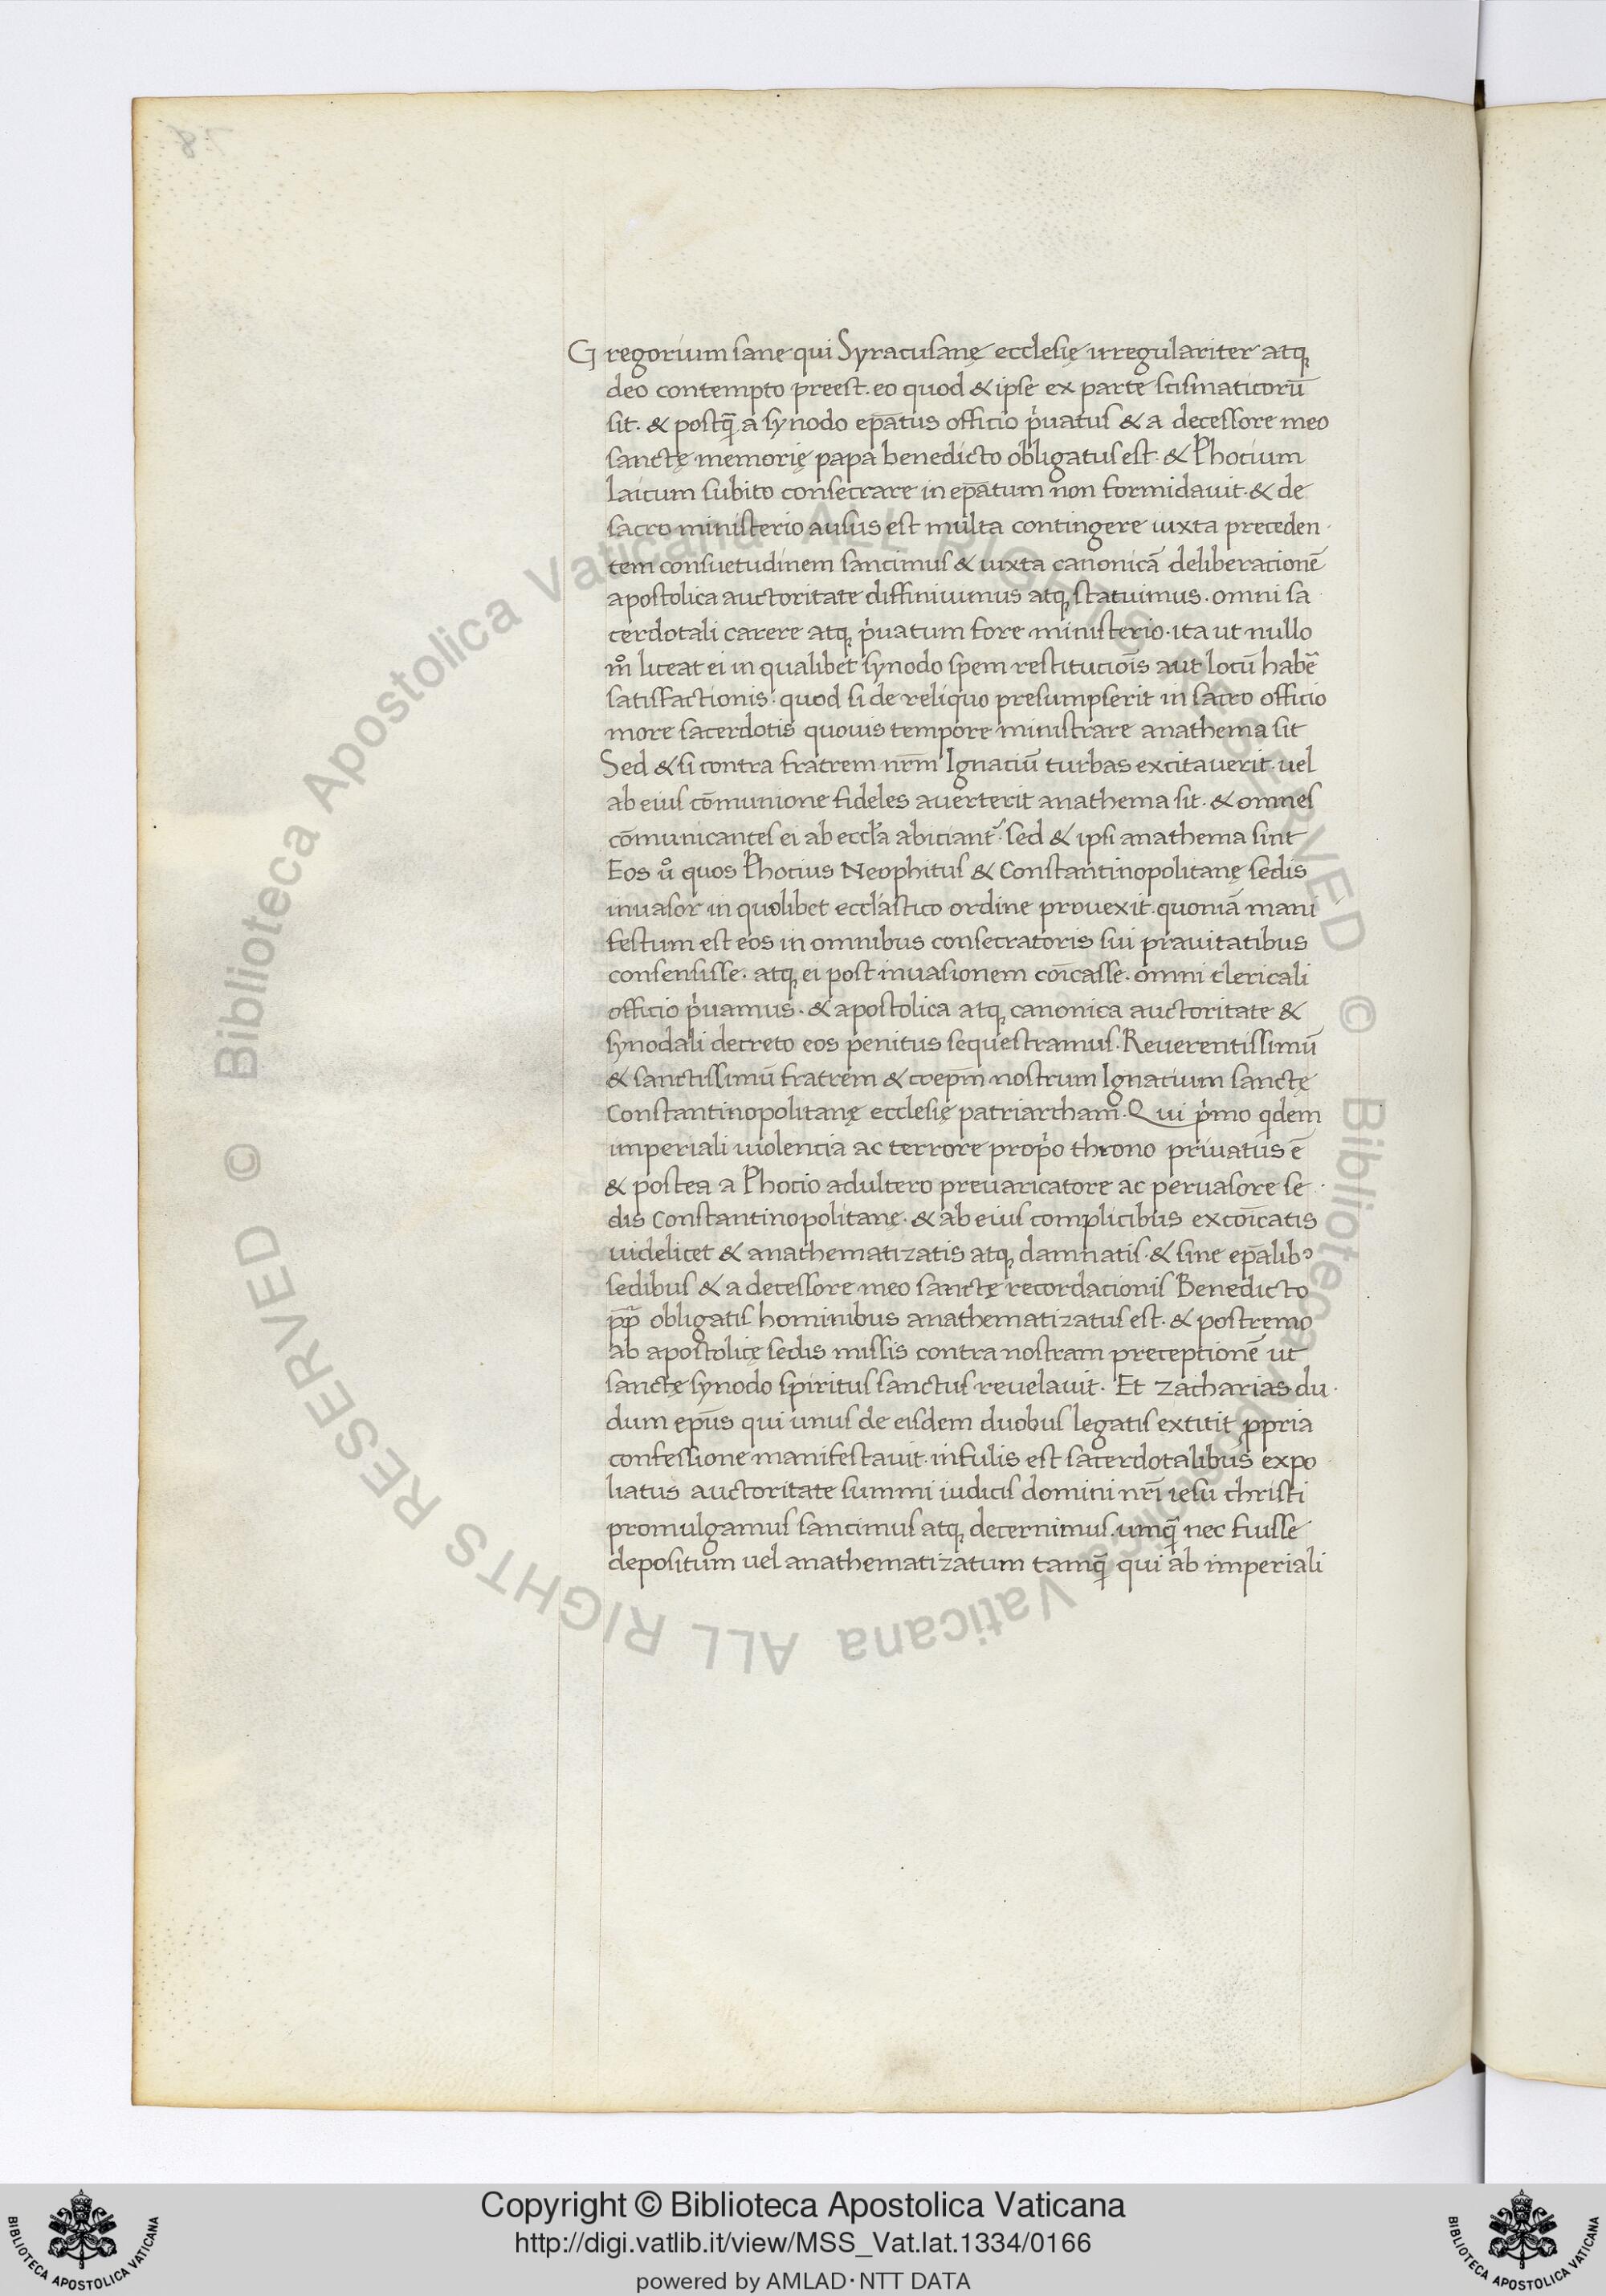 Gregorium sane qui Syracusanę ecclesię irregulariter atq;
deo contempto preest. eo quod & ipse ex parte scismaticorū
sit. & postq̄ a synodo ep̄atus officio p̾uatus & a decessore meo
sanctę memorię papa benedicto obligatus est. & Phocium
laicum subito consecrare in ep̄atum non formidauit. & de
sacro ministerio ausus est multa contingere iuxta preceden
tem consuetudinem sancimus & iuxta canonicā deliberacionē
apostolica auctoritate diffiniuimus atq; statuimus. omni sa
cerdotali carere atq; p̾uatum fore ministerio. ita ut nullo
mͦ liceat ei in qualibet synodo spem restitucioīs aut locū habē
satisfactionis. quod si de reliquo presumpserit in sacro officio
more sacerdotis quouis tempore ministrare anathema sit
Sed & si contra fratrem nr̄m Ignaciū turbas excitauerit. uel
ab eius cōmunione fideles auerterit anathema sit. & omnes
cōmunicantes ei ab eccl̄a abiciant᷑. sed & ipsi anathema sint
Eos uͦ quos Phocius Neophitus & Constantinopolitanę sedis
inuasor in quolibet eccl̄astico ordine prouexit. quoniā mani
festum est eos in omnibus consecratoris sui prauitatibus
consensisse. atq; ei post inuasionem coīcasse. omni clericali
officio p̾uamus. & apostolica atq; canonica auctoritate &
synodali decreto eos penitus sequestramus. Reuerentissimū
& sanctissimū fratrem & coep̄m nostrum Ignacium sanctę
Constantinopolitanę ecclesię patriarcham. Qui p̾mo qdem
imperiali uiolencia ac terrore prop̾o throno priuatus ē
& postea a Phocio adultero preuaricatore ac peruasore se
dis Constantinopolitanę. & ab eius complicibus excoīcatis
uidelicet & anathematizatis atq; damnatis. & sine ep̄alibꝰ
sedibus & a decessore meo sanctę recordacionis Benedicto
pp̄ obligatis hominibus anathematizatus est. & postremo
ab apostolicę sedis missis contra nostram preceptionē ut
sanctę synodo spiritus sanctus reuelauit. Et Zacharias du
dum ep̄us qui unus de eisdem duobus legatis extitit ꝓpria
confessione manifestauit. infulis est sacerdotalibus expo
liatus auctoritate summi iudicis domini nr̄i iesu christi
promulgamus sancimus atq; decernimus. umq̄ nec fuisse
depositum uel anathematizatum tamq̄ qui ab imperiali
© Biblioteca Apostolica Vaticana ALL RIGHTS RESERVED © Biblioteca Apostolica Vaticana ALL RIGHTS RESERVED
Copyright © Biblioteca Apostolica Vaticana
http://digi.vatlib.it/view/MSS_Vat.lat.1334/0166
powered by AMLAD·NTT DATA
BIBLIOTECA APOSTOLICA VATICANA
BIBLIOTECA APOSTOLICA VATICANA